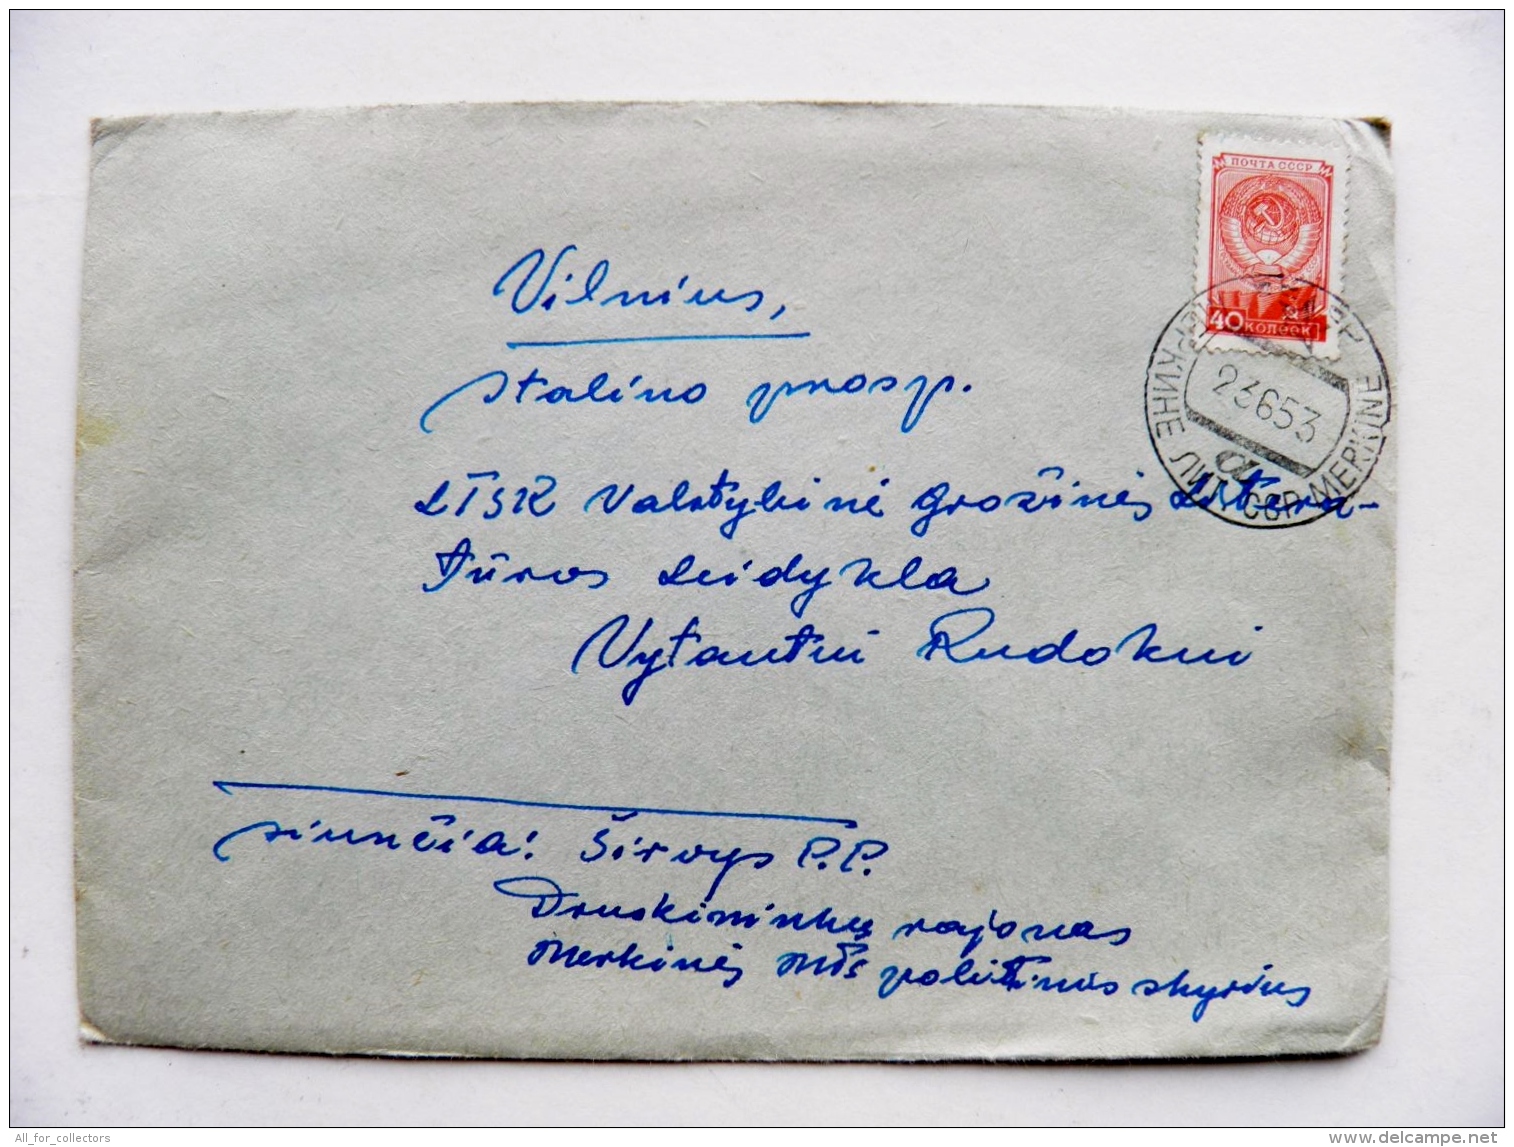 ПОЧТА СССР
40 КОПЕЕК
МЕРКИНЕ ЛИТ. ССР MERKINE
23653
a
Vilnius,
Stalino prosp.
LTSR Valstybinė Grožinės Litera-
tūros Leidykla
Vytautui Rudokui
siunčia: Širvys P.P.
Druskininkų rajonas
Merkinės MTS politinis skyrius
All_for_collectors
www.delcampe.net